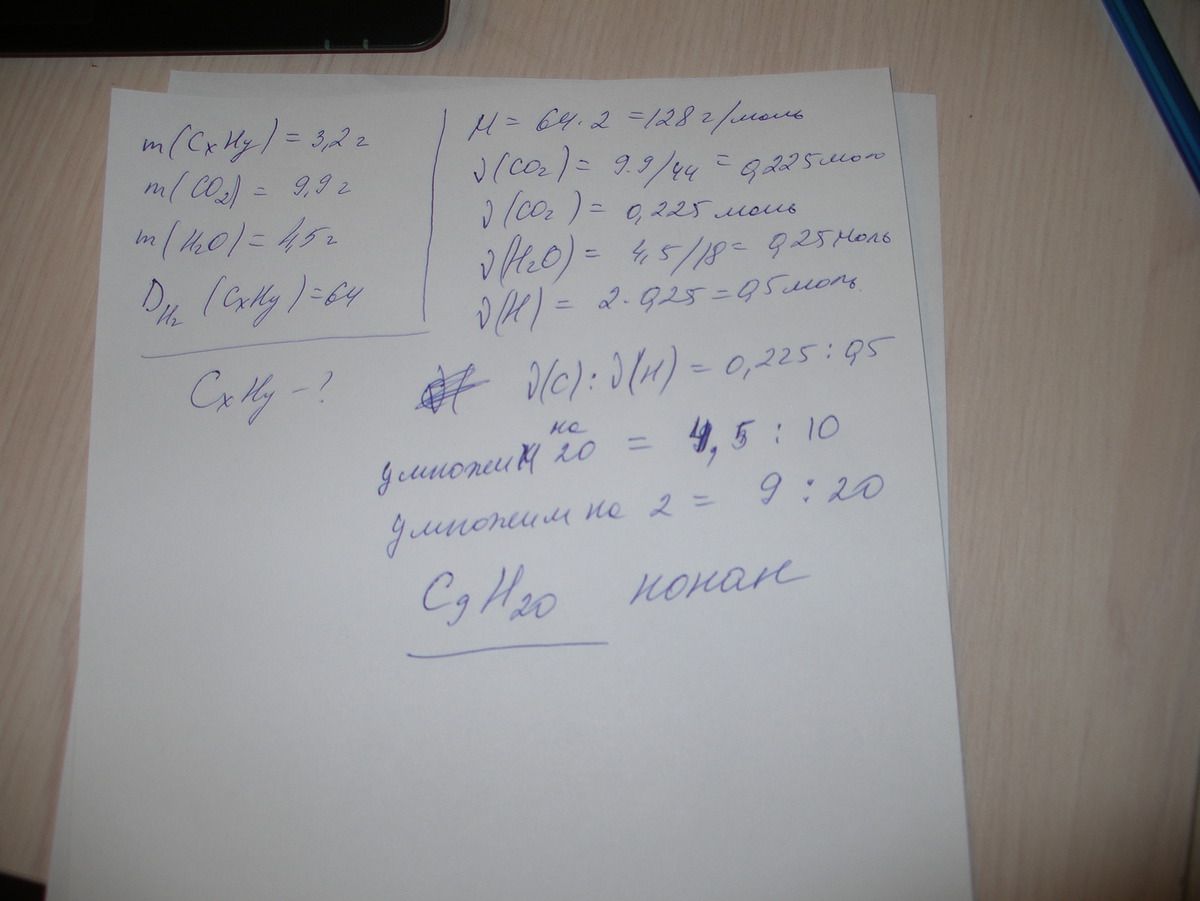 m(CxHy) = 3,2 г
m(CO2) = 9,9 г
m(H2O) = 4,5 г
DH2 (CxHy) = 64
CxHy - ?
M = 64·2 = 128 г/моль
ν(CO2) = 9.9/44 = 0,225 моль
ν(CO2) = 0,225 моль
ν(H2O) = 4,5/18 = 0,25 моль
ν(H) = 2·0,25 = 0,5 моль
ν(C) : ν(H) = 0,225 : 0,5
умножим на 20 = 4,5 : 10
умножим на 2 = 9 : 20
C9H20 нонан